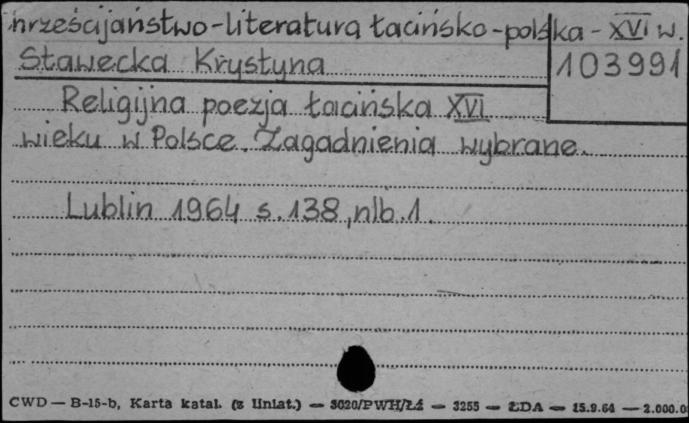 hrześcijaństwo-literatura łacińsko-polska - XVI w.
Stawecka Krystyna
103991
Religijna poezja łacińska XVI
wieku w Polsce. Zagadnienia wybrane.
Lublin 1964 s. 138, nlb. 1.
CWD — B-15-b, Karta katal. (z liniat.) — 3020/PWH/Łź — 3255 — ŁDA — 15.9.64 — 2.000.0